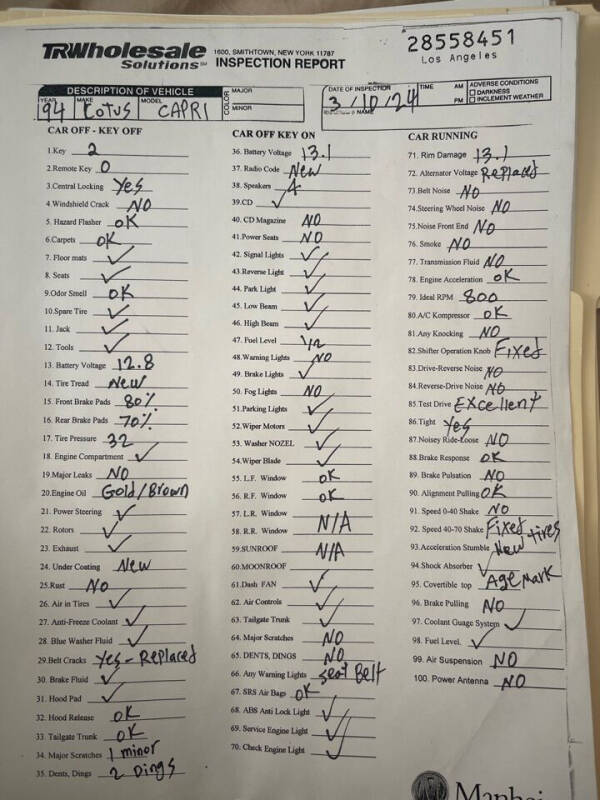 TRWholesale Solutions SM
1600, SMITHTOWN, NEW YORK 11787
INSPECTION REPORT
28558451
Los Angeles
DESCRIPTION OF VEHICLE
YEAR 94 MAKE Lotus MODEL CAPRI
COLOR MAJOR
MINOR
DATE OF INSPECTION 3/10/24
TIME AM
PM
NAME
ADVERSE CONDITIONS
DARKNESS
INCLEMENT WEATHER
CAR OFF - KEY OFF
1.Key 2
2.Remote Key 0
3.Central Locking Yes
4.Windshield Crack NO
5. Hazard Flasher OK
6.Carpets OK
7. Floor mats ✓
8. Seats ✓
9.Odor Smell OK
10.Spare Tire ✓
11. Jack ✓
12. Tools ✓
13. Battery Voltage 12.8
14. Tire Tread New
15. Front Brake Pads 80%
16. Rear Brake Pads 70%
17. Tire Pressure 32
18. Engine Compartment ✓
19.Major Leaks NO
20.Engine Oil Gold/Brown
21. Power Steering ✓
22. Rotors ✓
23. Exhaust ✓
24. Under Coating New
25.Rust No
26. Air in Tires ✓
27. Anti-Freeze Coolant ✓
28. Blue Washer Fluid ✓
29.Belt Cracks Yes - Replaced
30. Brake Fluid ✓
31. Hood Pad ✓
32. Hood Release OK
33. Tailgate Trunk OK
34. Major Scratches 1 minor
35. Dents, Dings 2 Dings
CAR OFF KEY ON
36. Battery Voltage 13.1
37. Radio Code New
38. Speakers 4
39.CD ✓
40. CD Magazine NO
41.Power Seats NO
42. Signal Lights ✓
43.Reverse Light ✓
44. Park Light ✓
45. Low Beam ✓
46. High Beam ✓
47. Fuel Level 1/2
48.Warning Lights NO
49. Brake Lights ✓
50. Fog Lights NO
51.Parking Lights ✓
52.Wiper Motors ✓
53. Washer NOZEL ✓
54.Wiper Blade ✓
55. L.F. Window OK
56. R.F. Window OK
57. L.R. Window
58. R.R. Window N/A
59.SUNROOF N/A
60.MOONROOF
61.Dash FAN ✓
62. Air Controls ✓
63. Tailgate Trunk ✓
64. Major Scratches NO
65. DENTS, DINGS NO
66. Any Warning Lights seat Belt
67. SRS Air Bags OK
68. ABS Anti Lock Light ✓
69. Service Engine Light ✓
70. Check Engine Light ✓
CAR RUNNING
71. Rim Damage 13.1
72. Alternator Voltage Replaced
73.Belt Noise NO
74.Steering Wheel Noise NO
75.Noise Front End NO
76. Smoke NO
77. Transmission Fluid NO
78. Engine Acceleration OK
79. Ideal RPM 800
80.A/C Kompressor OK
81.Any Knocking NO
82.Shifter Operation Knob Fixed
83.Drive-Reverse Noise NO
84.Reverse-Drive Noise NO
85.Test Drive EXcellent
86.Tight Yes
87.Noisey Ride-Loose NO
88.Brake Response OK
89. Brake Pulsation NO
90. Alignment Pulling OK
91. Speed 0-40 Shake NO
92. Speed 40-70 Shake Fixed
93.Acceleration Stumble New tires
94.Shock Absorber ✓
95. Covertible top Age Mark
96. Brake Pulling NO
97. Coolant Guage System ✓
98. Fuel Level. ✓
99. Air Suspension NO
100. Power Antenna NO